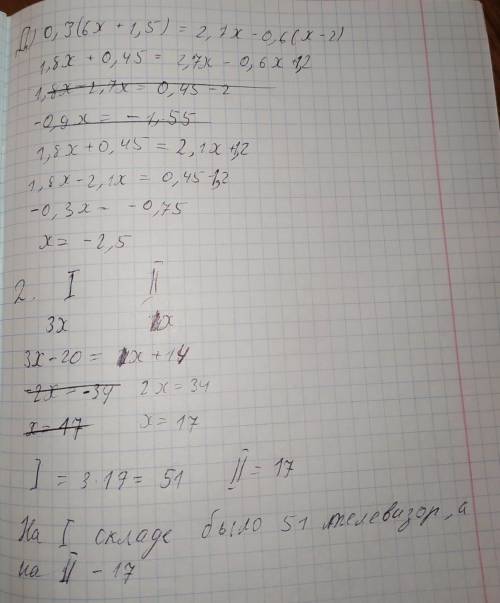 Д) 0,3(6x + 1,5) = 2,7x - 0,6(x - 2)
1,8x + 0,45 = 2,7x - 0,6x + 1,2
1,8x - 2,7x = 0,45 - 2
-0,9x = -1,55
1,8x + 0,45 = 2,1x + 1,2
1,8x - 2,1x = 0,45 - 1,2
-0,3x = -0,75
x = -2,5
2. I II
3x x
3x - 20 = x + 14
-2x = -34 2x = 34
x = 17 x = 17
I = 3·17 = 51 II = 17
На I складе было 51 телевизор, а
на II - 17